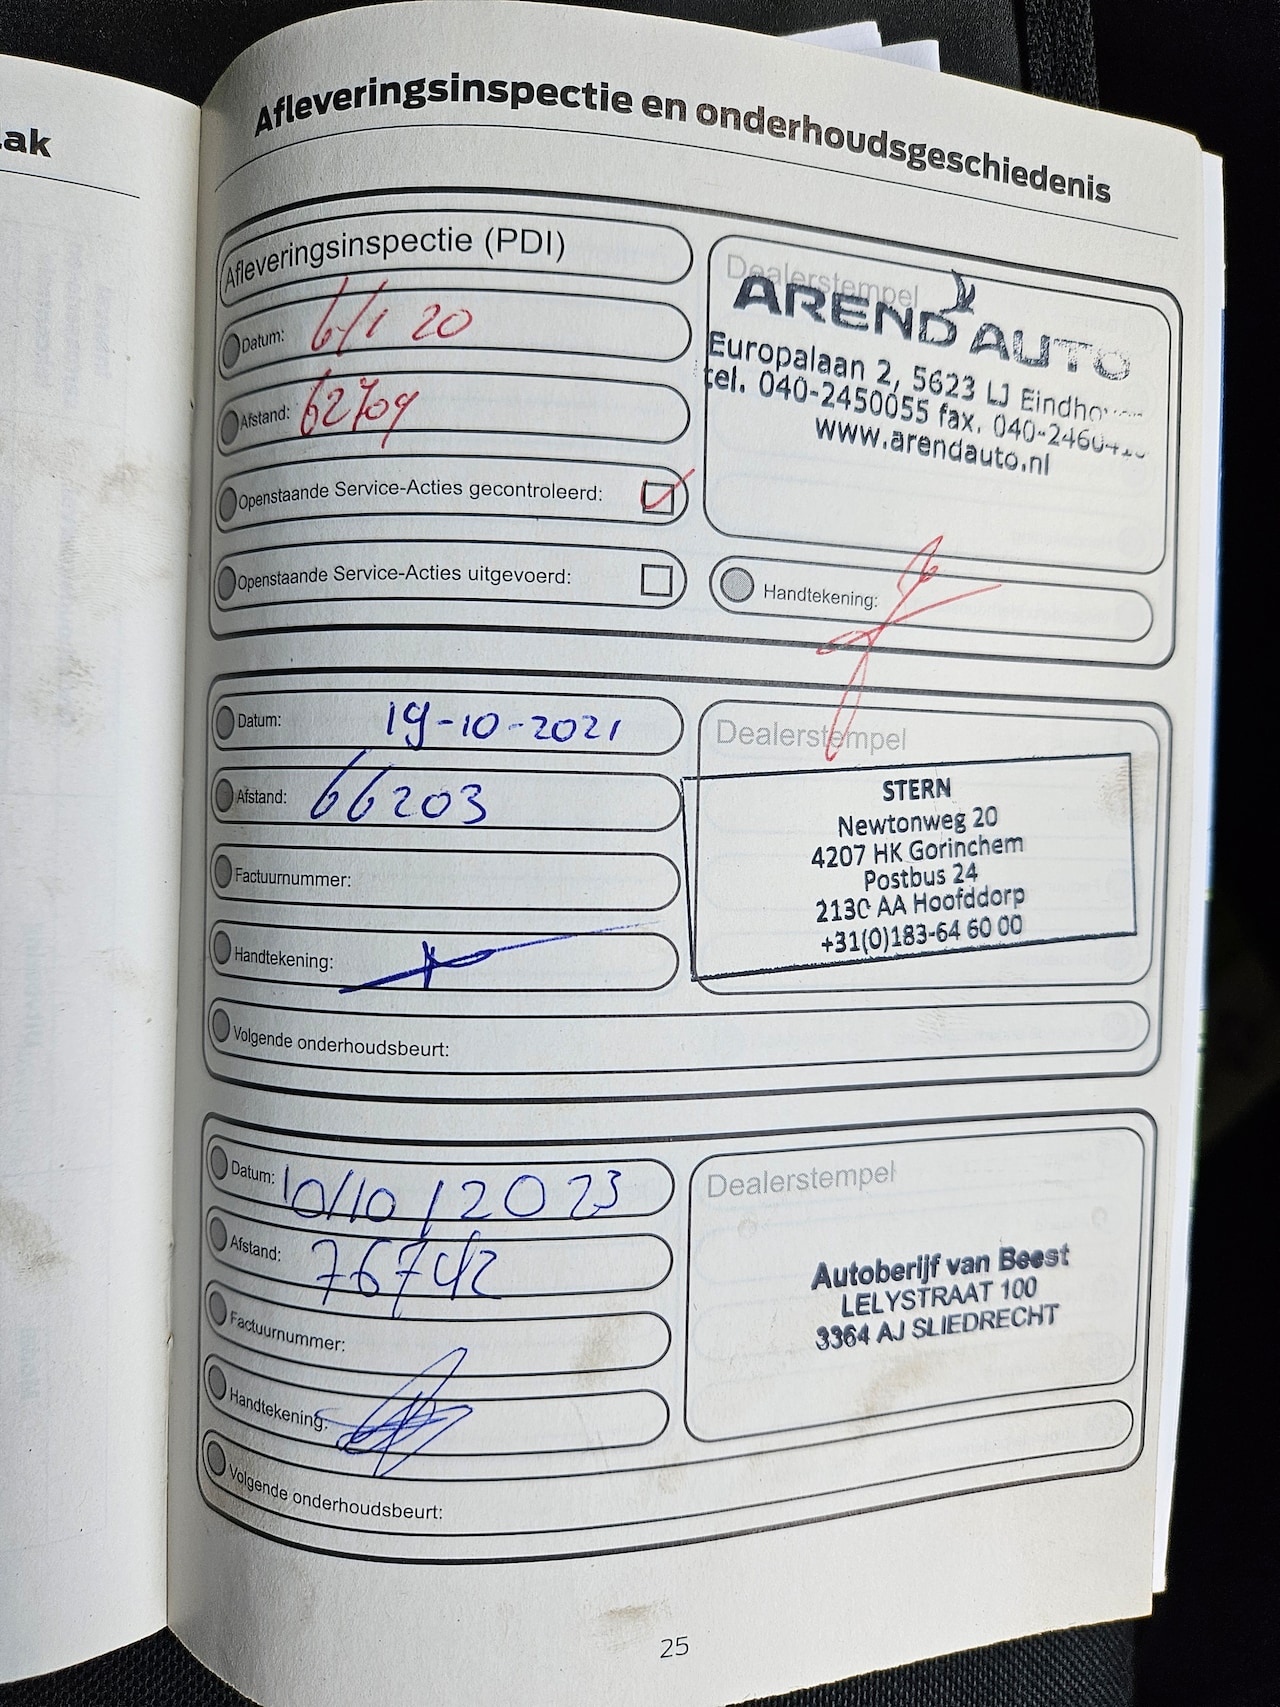 ak
Afleveringsinspectie en onderhoudsgeschiedenis
Afleveringsinspectie (PDI)
Datum: 6/1 20
Afstand: 62709
Openstaande Service-Acties gecontroleerd:
Openstaande Service-Acties uitgevoerd:
Dealerstempel
AREND AUTO
Europalaan 2, 5623 LJ
tel. 040-2450055 fax.
www.arendauto.nl
Handtekening:
Datum: 19-10-2021
Afstand: 66203
Factuurnummer:
Handtekening:
Volgende onderhoudsbeurt:
Dealerstempel
STERN
Newtonweg 20
4207 HK Gorinchem
Postbus 24
2130 AA Hoofddorp
+31(0)183-64 60 00
Datum: 10/10/2023
Afstand: 76742
Factuurnummer:
Handtekening:
Volgende onderhoudsbeurt:
Dealerstempel
Autoberijf van Beest
LELYSTRAAT 100
3364 AJ SLIEDRECHT
25